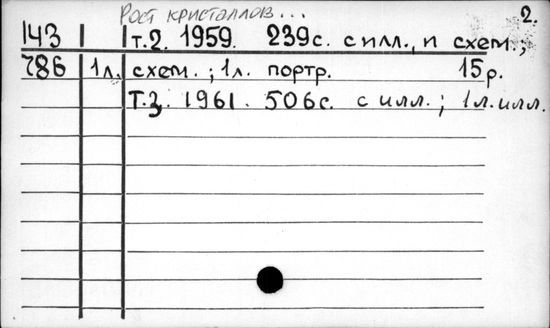 Рост кристаллов...
2.
143 т.2. 1959. 239с. с илл., и схем.;
786 1л. схем.; 1л. портр. 15р.
Т.3. 1961. 506с. с илл.; 1л. илл.